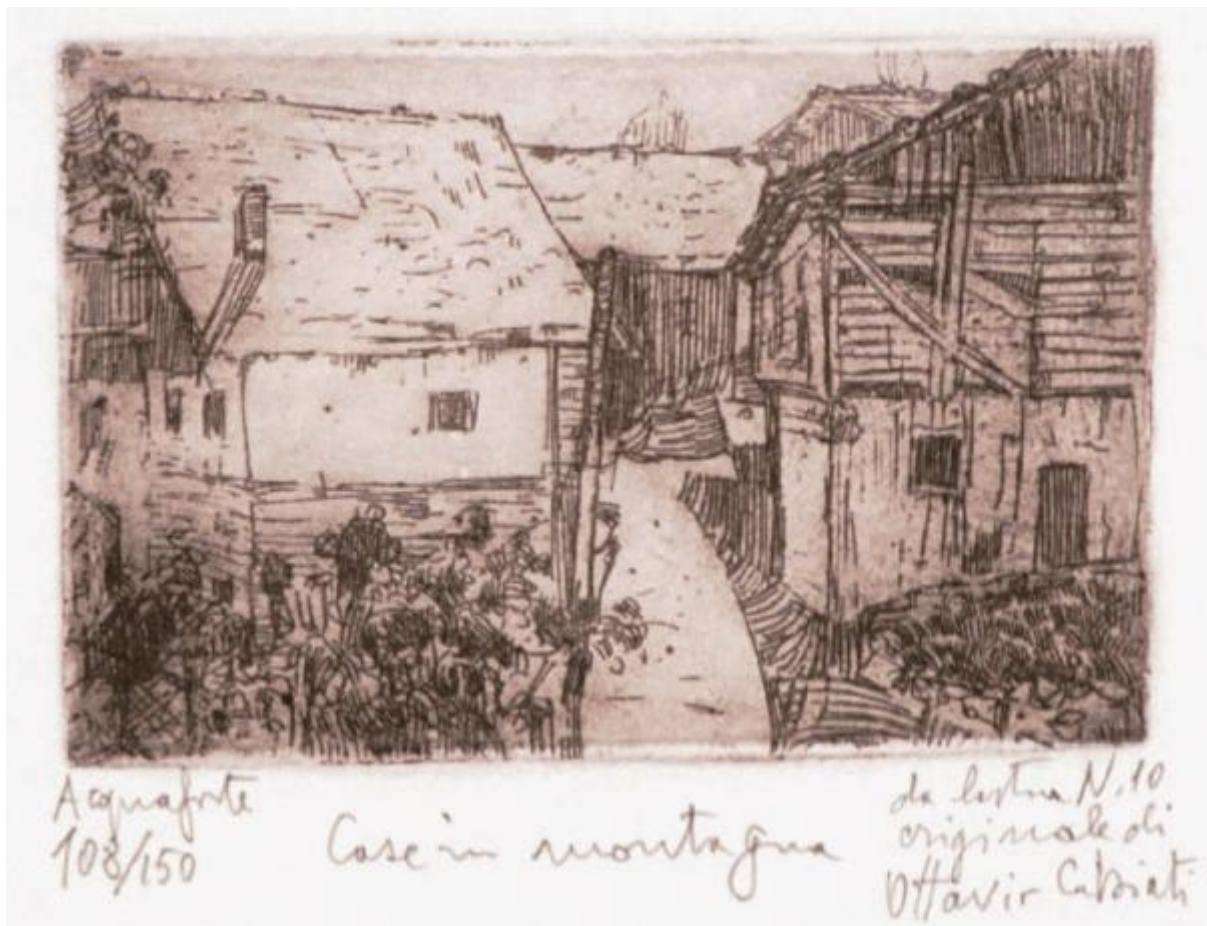 Acquaforte
108/150
Case in montagna
da lastra N. 10
originale di
Ottavio Cabiati